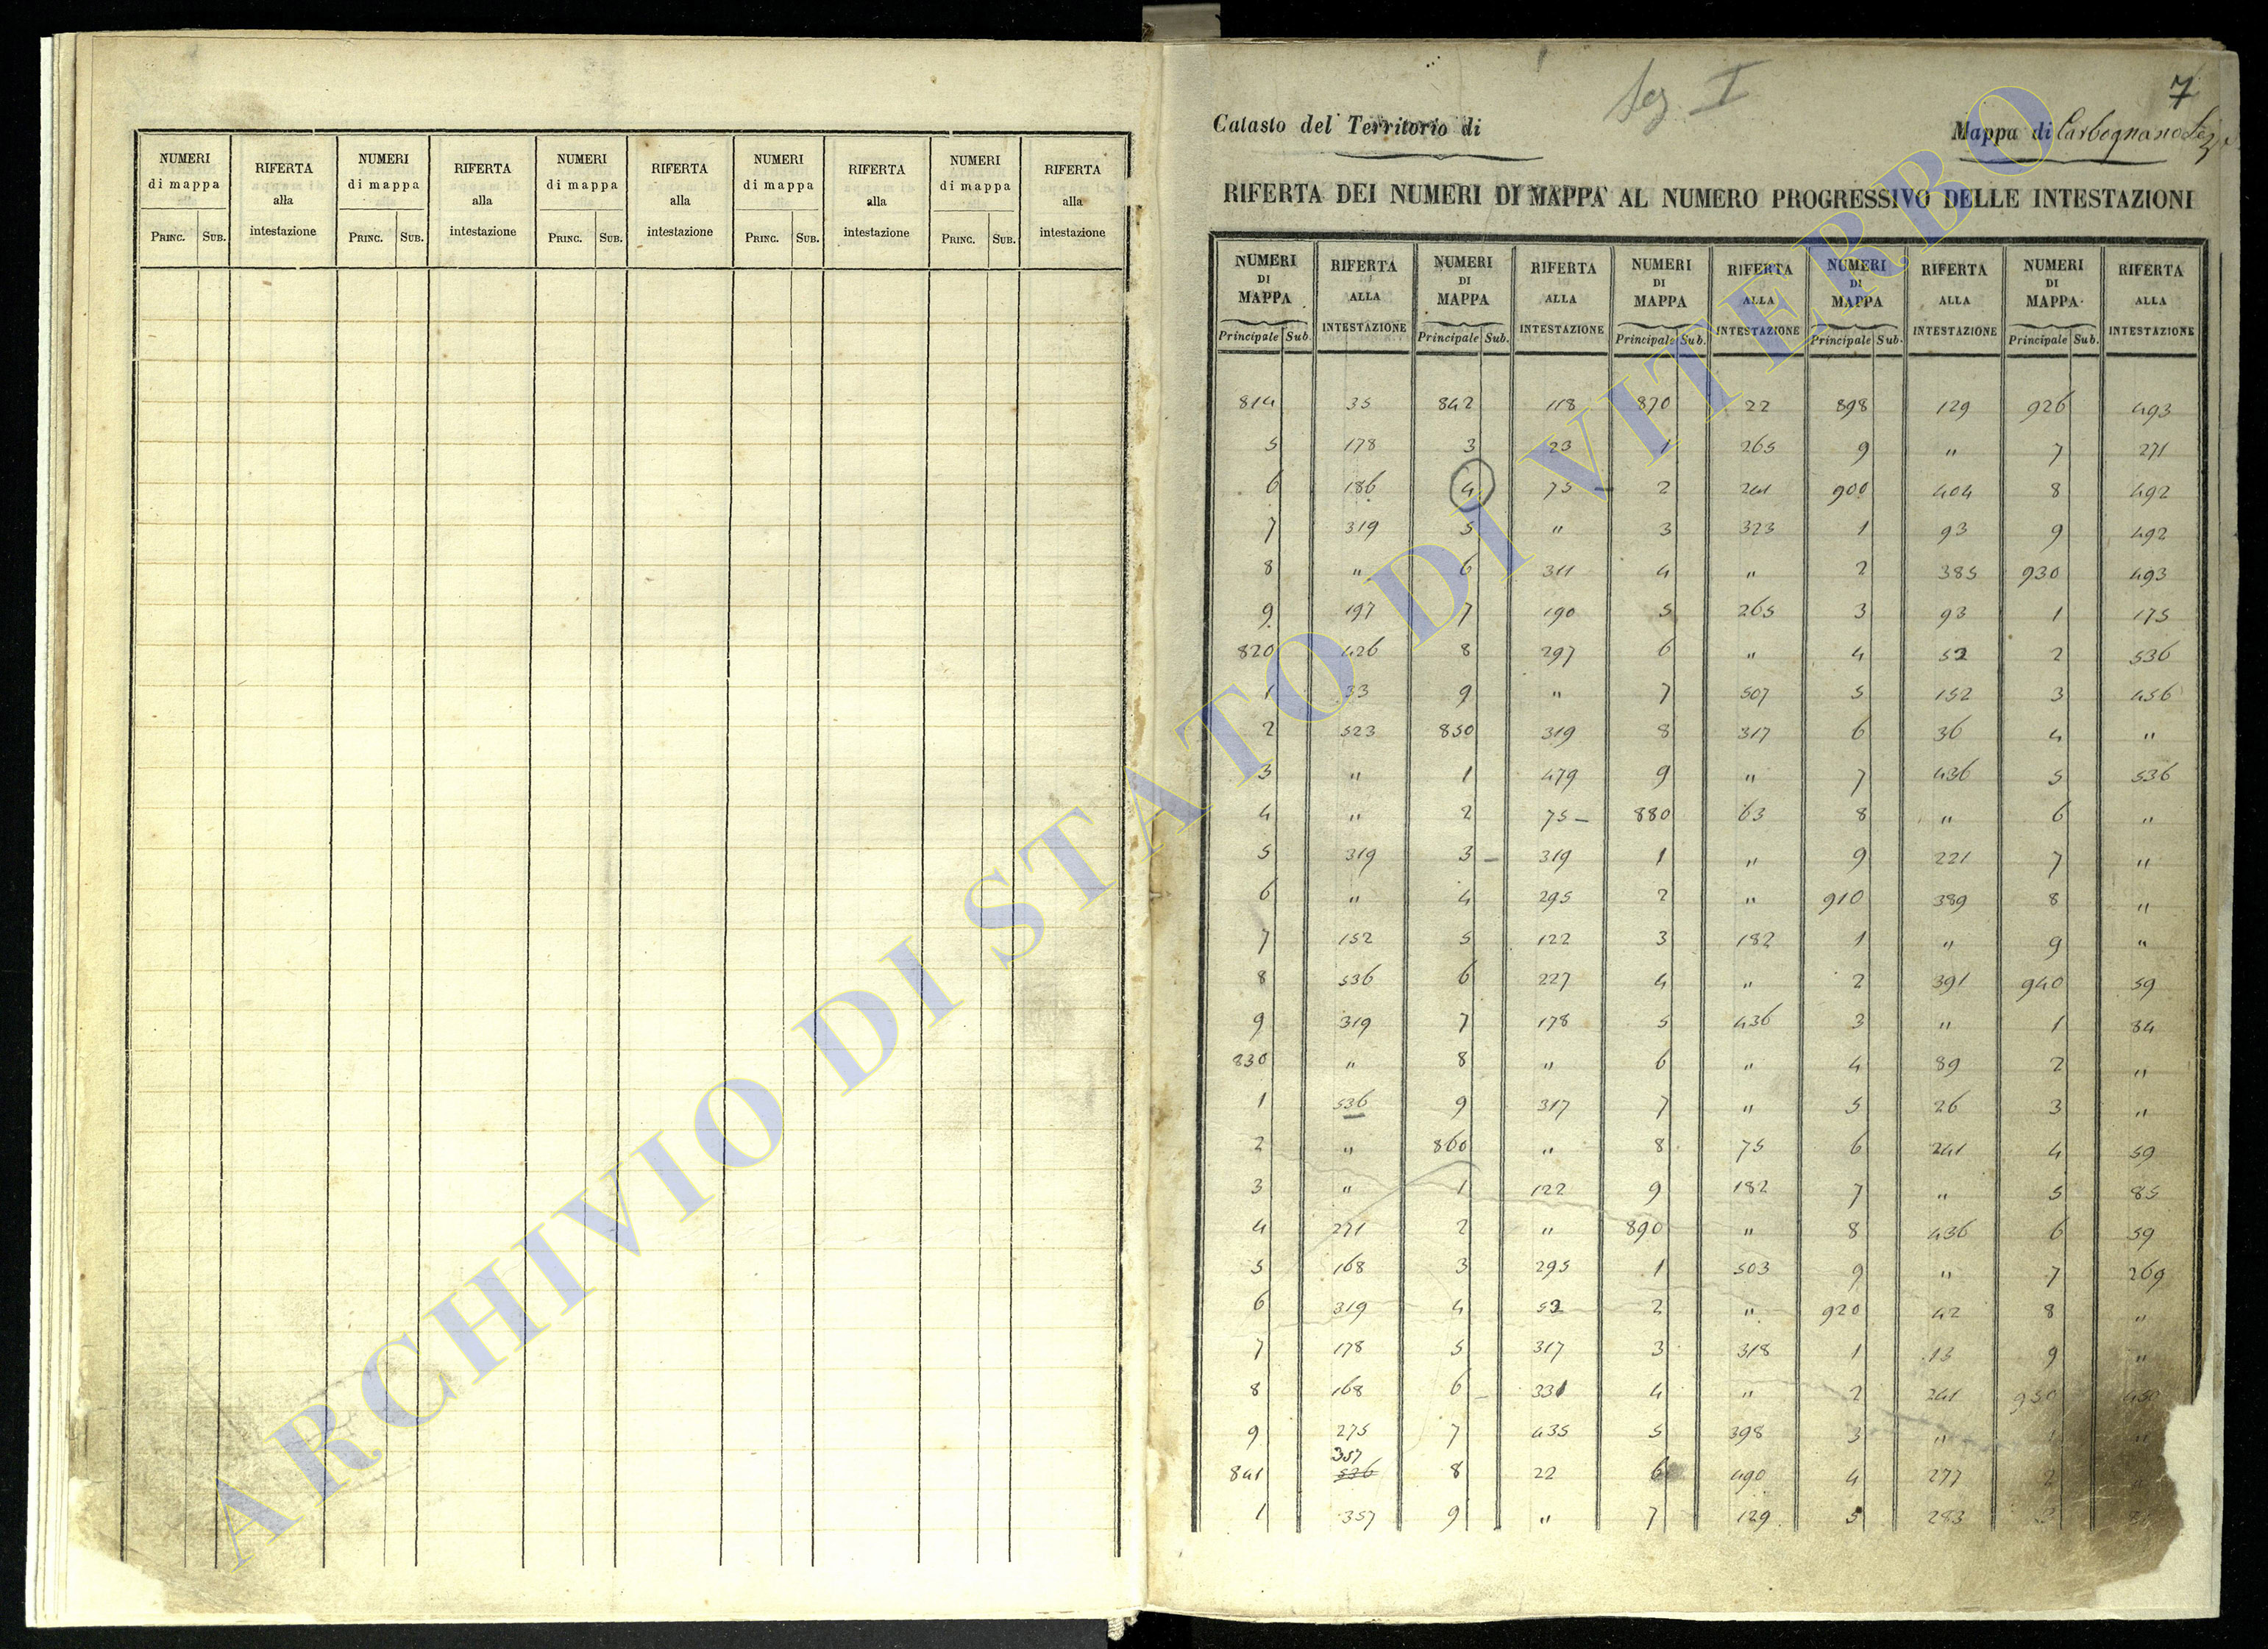 NUMERI di mappa RIFERTA alla intestazione NUMERI di mappa RIFERTA alla intestazione NUMERI di mappa RIFERTA alla intestazione NUMERI di mappa RIFERTA alla intestazione NUMERI di mappa RIFERTA alla intestazione
PRINC. SUB. PRINC. SUB. PRINC. SUB. PRINC. SUB. PRINC. SUB.
7
Seg. I
Catasto del Territorio di Mappa di Carbognano Sez
RIFERTA DEI NUMERI DI MAPPA AL NUMERO PROGRESSIVO DELLE INTESTAZIONI
NUMERI DI MAPPA RIFERTA ALLA INTESTAZIONE NUMERI DI MAPPA RIFERTA ALLA INTESTAZIONE NUMERI DI MAPPA RIFERTA ALLA INTESTAZIONE NUMERI DI MAPPA RIFERTA ALLA INTESTAZIONE NUMERI DI MAPPA RIFERTA ALLA INTESTAZIONE
Principale Sub. Principale Sub. Principale Sub. Principale Sub. Principale Sub.
814 35 842 118 870 22 898 129 926 493
5 178 3 23 1 265 9 " 7 271
6 186 4 75 — 2 241 900 404 8 492
7 319 5 " 3 323 1 93 9 492
8 " 6 311 4 " 2 385 930 493
9 197 7 190 5 265 3 93 1 175
820 426 8 297 6 " 4 52 2 536
1 33 9 " 7 507 5 152 3 456
2 523 850 319 8 317 6 36 4 "
3 " 1 479 9 " 7 436 5 536
4 " 2 75 — 880 63 8 " 6 "
5 319 3 — 319 1 " 9 221 7 "
6 " 4 295 2 " 910 389 8 "
7 152 5 122 3 182 1 " 9 "
8 536 6 227 4 " 2 391 940 59
9 319 7 178 5 436 3 " 1 84
830 " 8 " 6 " 4 89 2 "
1 536 9 317 7 " 5 26 3 "
2 " 860 " 8 75 6 241 4 59
3 " 1 122 9 182 7 " 5 85
4 271 2 " 890 " 8 436 6 59
5 168 3 295 1 503 9 " 7 269
6 319 4 52 2 " 920 42 8 "
7 178 5 317 3 318 1 13 9 "
8 168 6 — 331 4 " 2 241 950 450
9 275 7 435 5 398 3 " 1 "
357
841 536 8 22 6 490 4 277 2
1 357 9 " 7 129 5 283
ARCHIVIO DI STATO DI VITERBO